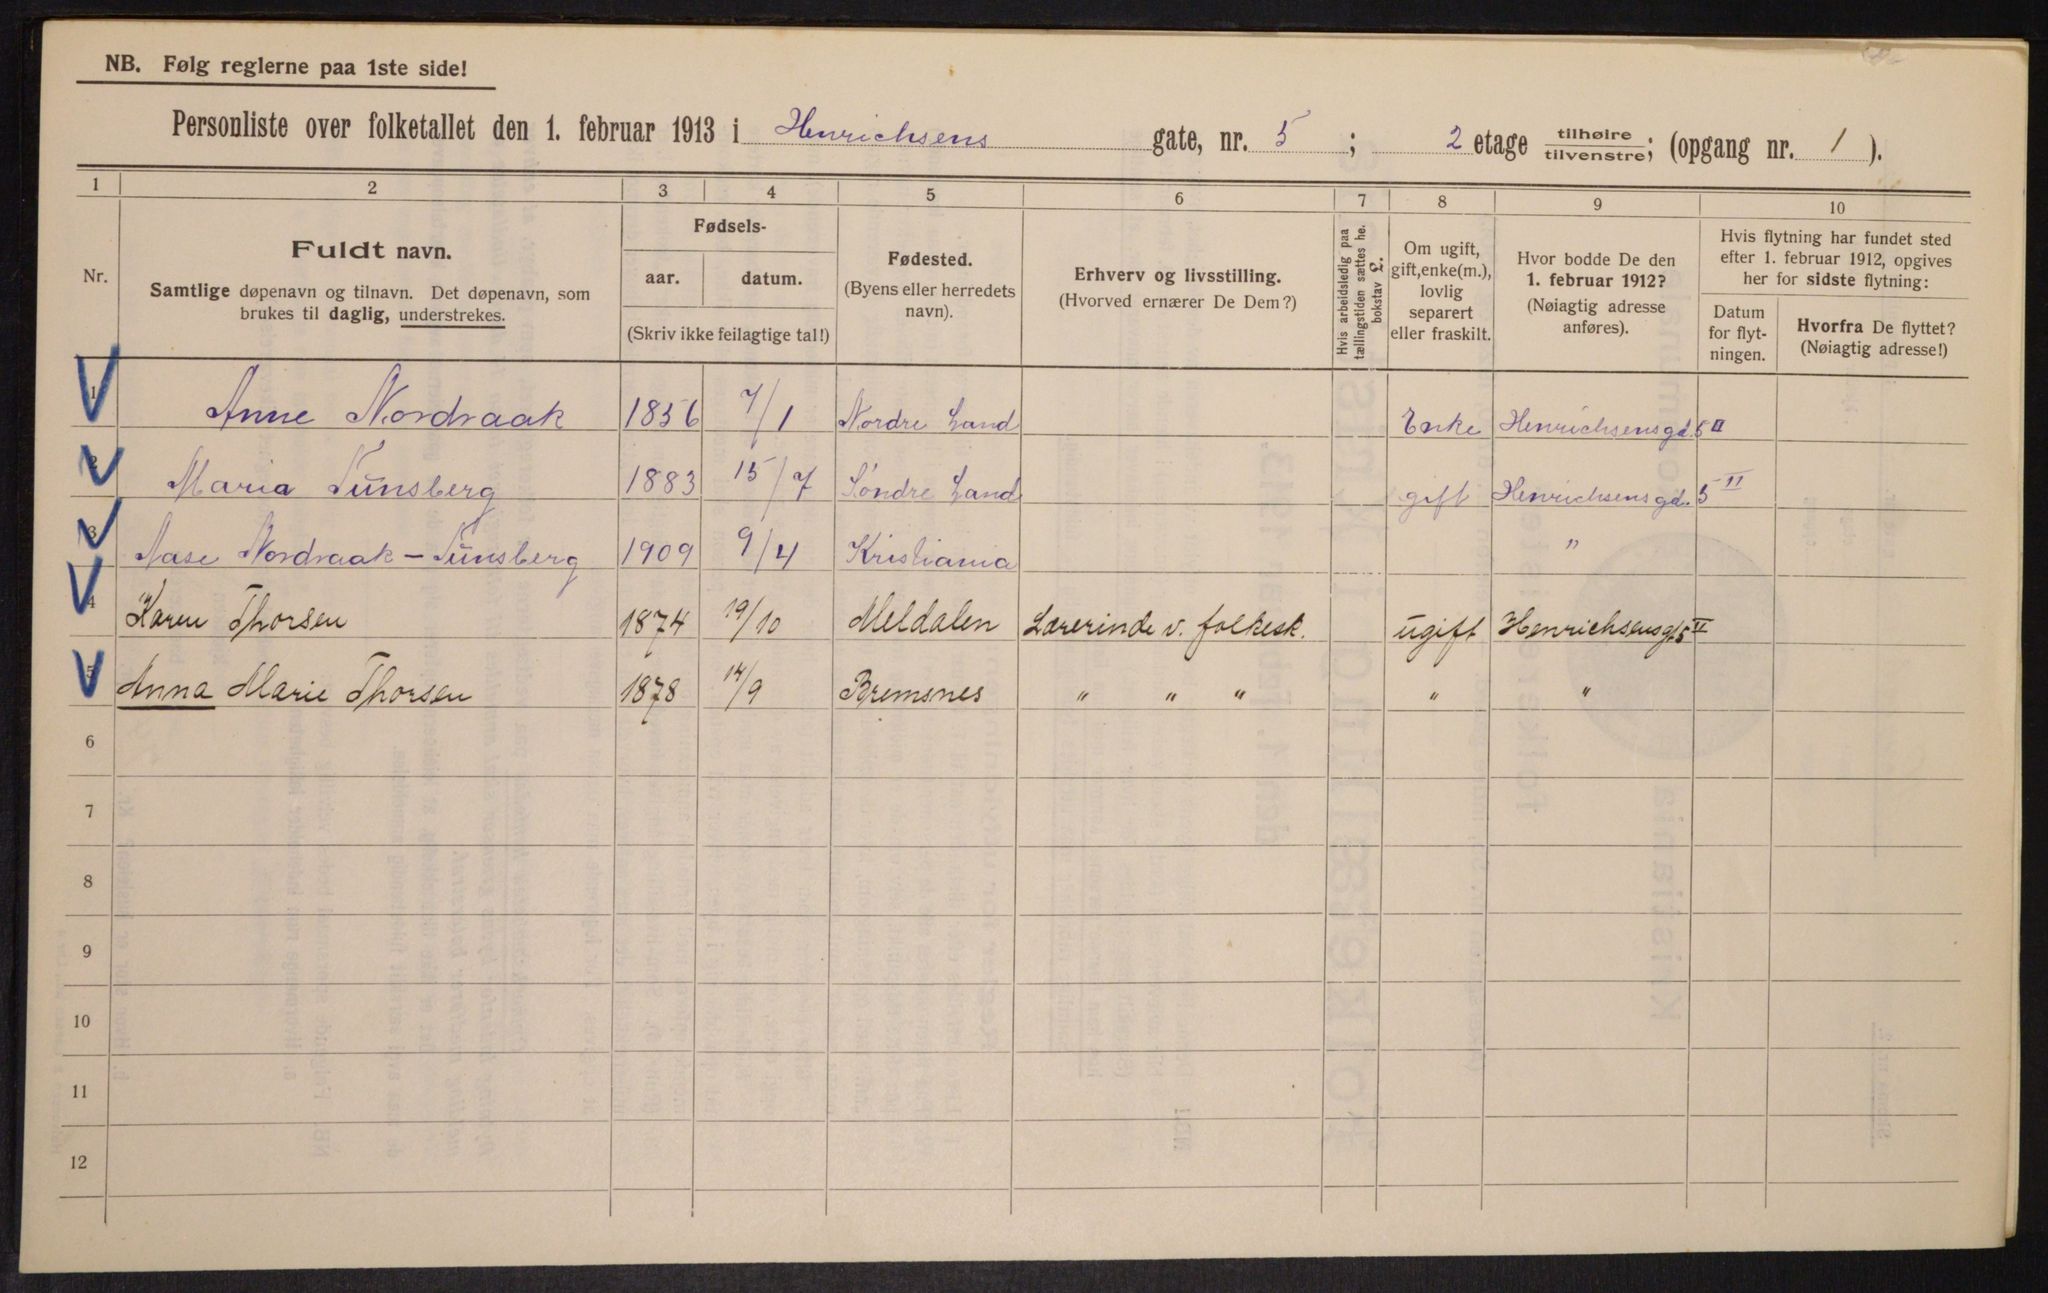 NB. Følg reglerne paa 1ste side!
Personliste over folketallet den 1. februar 1913 i Henrichsens gate, nr. 5 ; 2 etage tilhøire / tilvenstre; (opgang nr. 1 ).
1 2 3 4 5 6 7 8 9 10
Nr.
Fuldt navn.
Samtlige døpenavn og tilnavn. Det døpenavn, som
brukes til daglig, understrekes.
Fødsels-
aar. datum.
(Skriv ikke feilagtige tal!)
Fødested.
(Byens eller herredets
navn).
Erhverv og livsstilling.
(Hvorved ernærer De Dem?)
Hvis arbeidsledig paa
tællingstiden sættes he.
bokstav L.
Om ugift,
gift, enke(m.),
lovlig
separert
eller fraskilt.
Hvor bodde De den
1. februar 1912?
(Nøiagtig adresse
anføres).
Hvis flytning har fundet sted
efter 1. februar 1912, opgives
her for sidste flytning:
Datum
for flyt-
ningen.
Hvorfra De flyttet?
(Nøiagtig adresse!)
1 Anne Nordraak 1856 7/1 Nordre Land Enke Henrichsensgd. 5 II
2 Maria Tunsberg 1883 15/7 Søndre Land gift Henrichsensgd. 5 II
3 Aase Nordraak - Tunsberg 1909 9/4 Kristiania "
4 Karen Thorsen 1874 19/10 Meldalen Lærerinde v. folkesk. ugift Henrichsensgt. 5 II
5 Anna Marie Thorsen 1878 14/9 Bremsnes " " " " "
6
7
8
9
10
11
12